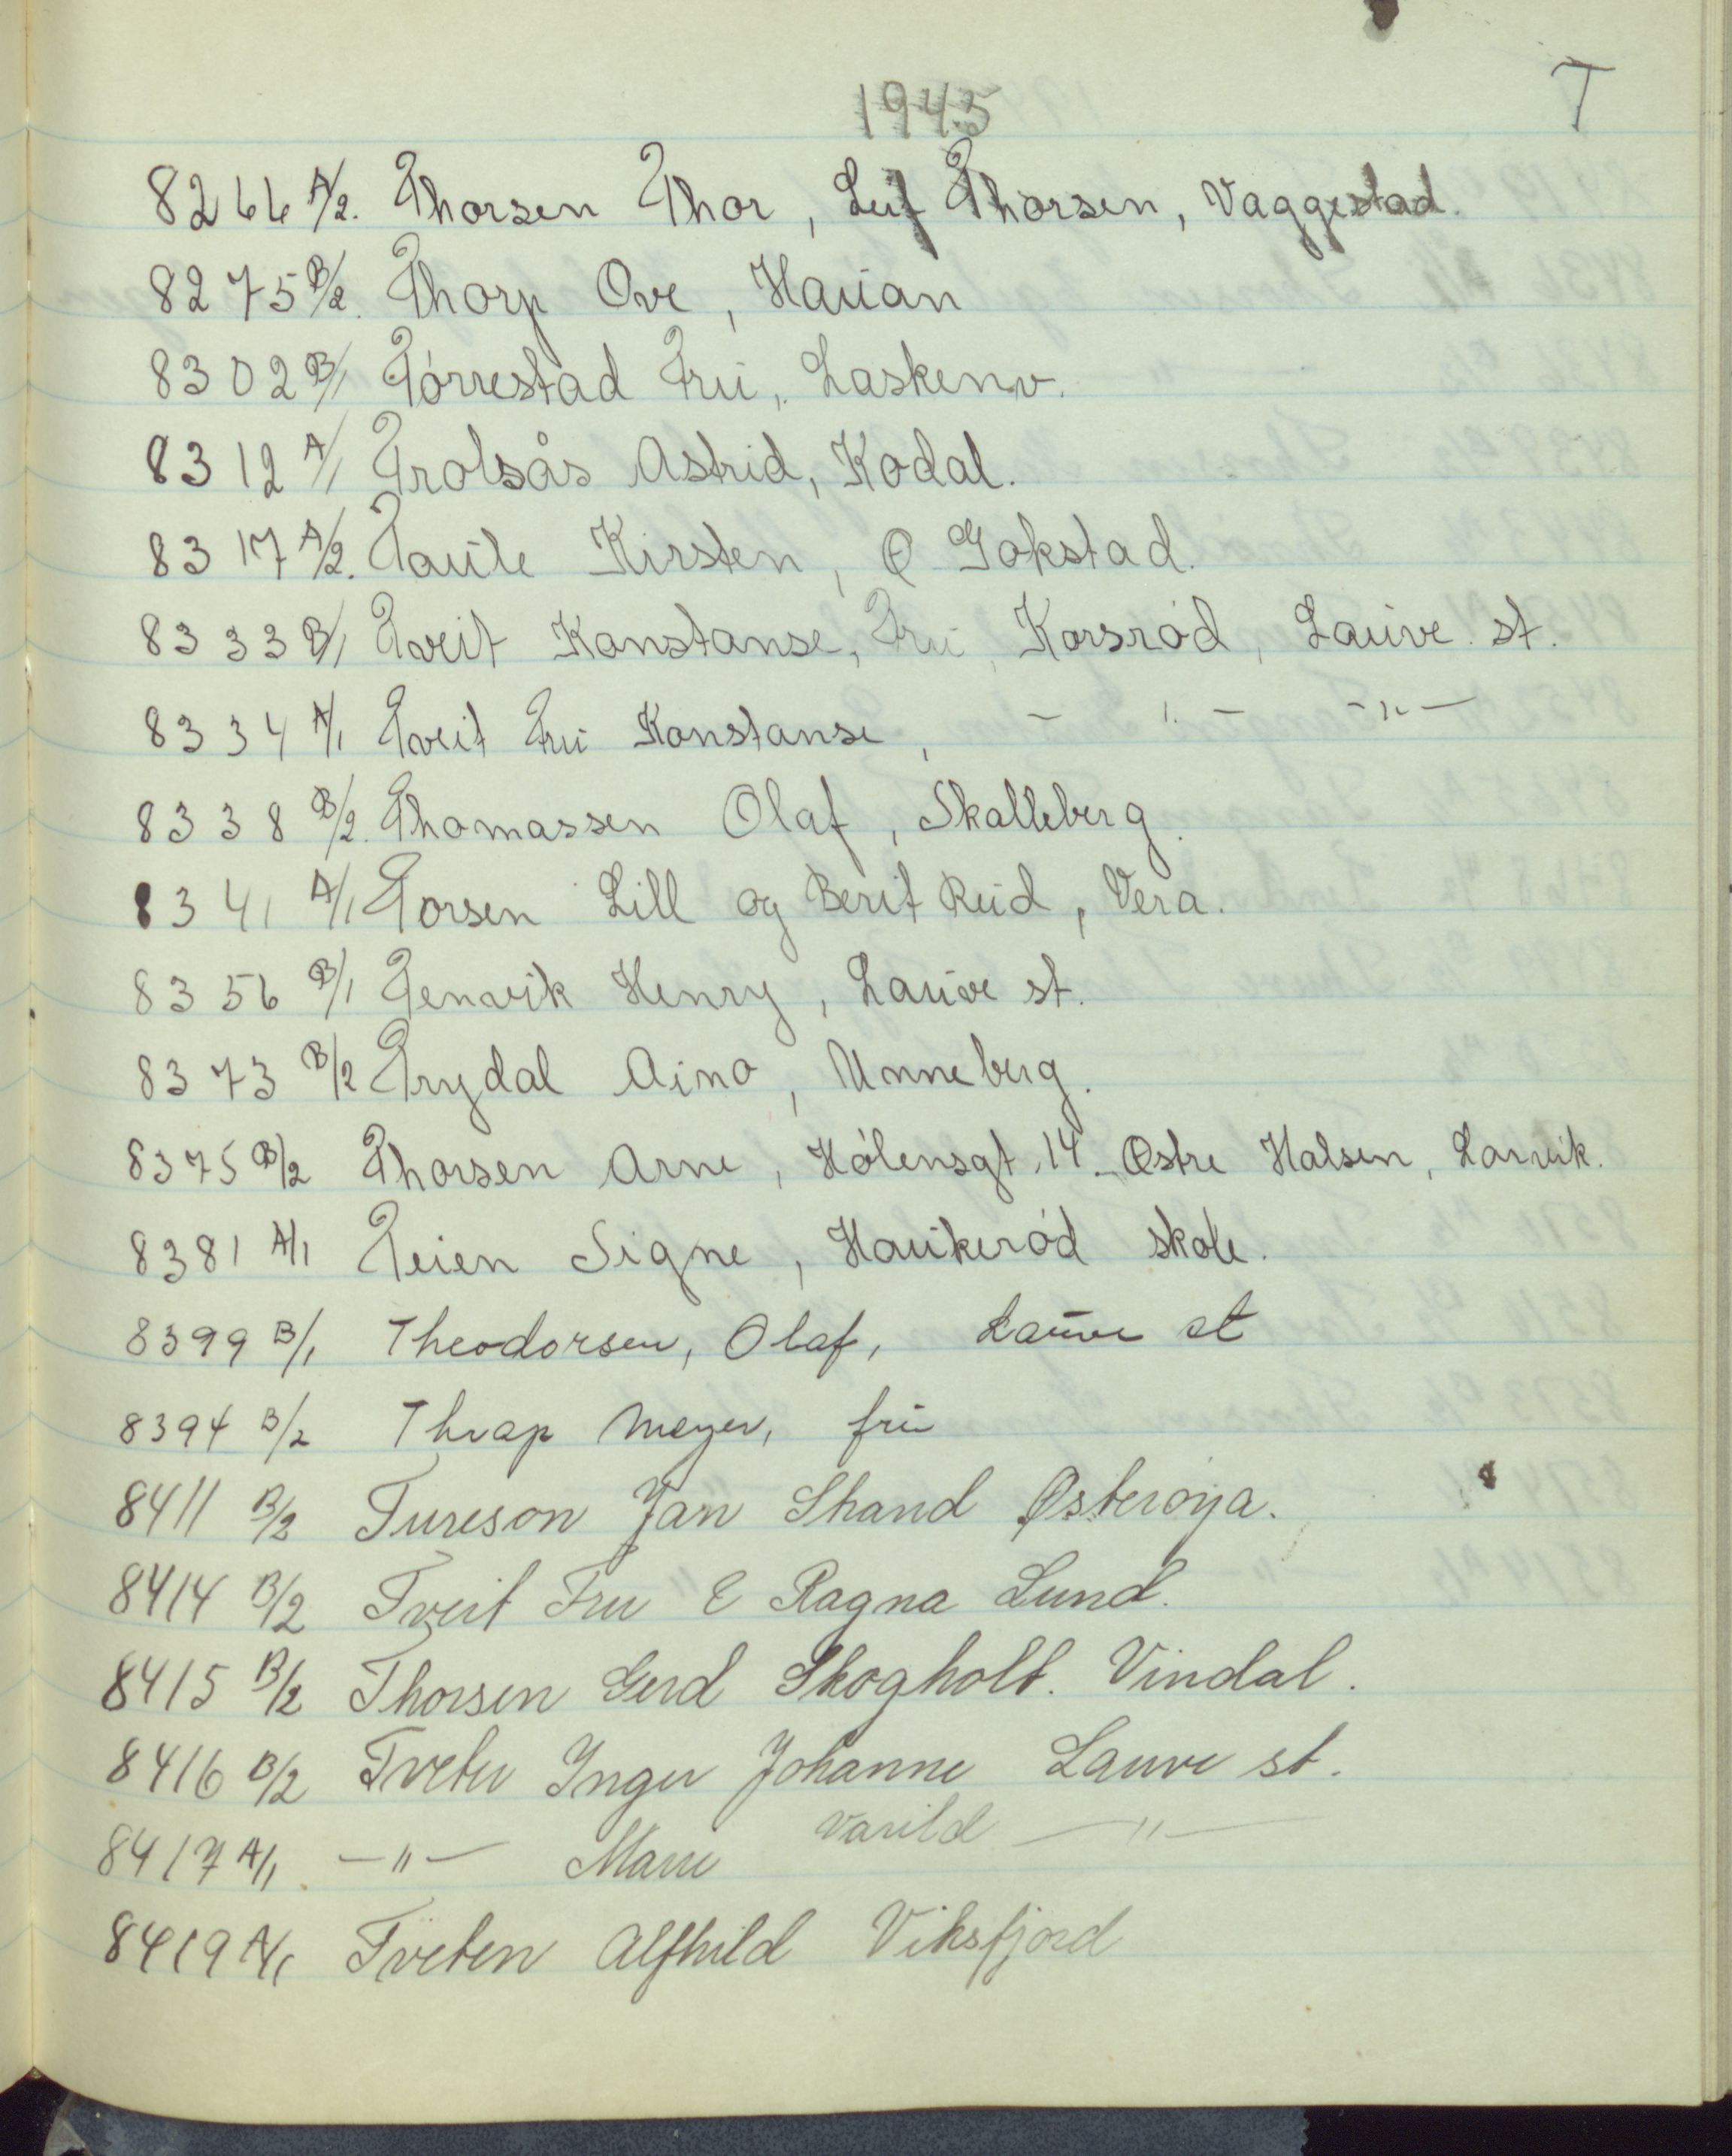 1945
T
8266 A/2. Thorsen Thor, Leif Thorsen, Vaggestad.
8275 B/2. Thorp Ove, Hauan
8302 B/1 Tórrestad Fru, Laskenv.
8312 A/1 Trolsås Astrid, Kodal.
8317 A/2. Taule Kirsten, Ø Gokstad.
8333 B/1 Tveit Konstanse, Fru, Korsród, Lauve st.
8334 A/1 Tveit Fru Konstanse, - " - - " -
8338 B/2. Thomassen Olaf, Skalleberg.
8341 A/1 Torsen Lill og Berit Reid, Vera.
8356 B/1 Tenvik Henry, Lauve st.
8373 B/2 Trydal Aino, Unneberg.
8375 B/2 Thorsen Arne, Hólensgt. 14. Østre Halsen, Larvik.
8381 A/1 Teien Signe, Haukeród skole.
8399 B/1 Theodorsen, Olaf, Lauve st
8394 B/2 Thrap Meyer, fru
8411 B/2 Tureson Jan Strand Østerøya.
8414 B/2 Tveit Fru E Ragna Lund.
8415 B/2 Thorsen Gerd Skogholt. Vindal.
8416 B/2 Tveter Inger Johanne Lauve st.
8417 A/1. - " - Marie Varild - " -
8419 A/1 Tveten Alfhild Viksfjord